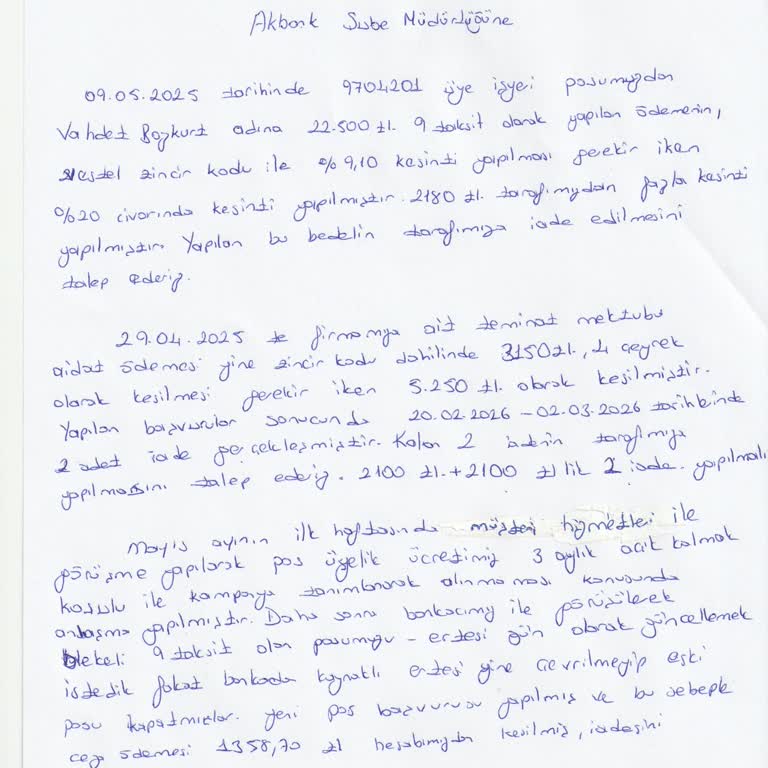 Akbank Şube Müdürlüğüne
09.05.2025 tarihinde 9704201 üye işyei posumuzdan
Vahdet Bozkurt adına 22.500 tl. 9 taksit olarak yapılan ödemenin,
vestel zincir kodu ile %9,10 kesinti yapılması gerekir iken
%20 civarında kesinti yapılmıştır. 2180 tl. tarafımızdan fazla kesinti
yapılmıştır. Yapılan bu bedelin tarafımıza iade edilmesini
talep ederiz.
29.04.2025 te firmamıza ait teminat mektubu
aidat ödemesi yine zincir kodu dahilinde 3150tl., 4 çeyrek
olarak kesilmesi gerekir iken 5.250 tl. olarak kesilmiştir.
Yapılan başvurular sonucunda 20.02.2026 - 02.03.2026 tarihlerinde
2 adet iade gerçekleşmiştir. Kalan 2 iadenin tarafımıza
yapılmasını talep ederiz. 2100 tl.+2100 tl lik 2 iade. yapılmalı
Mayıs ayının ilk haftasında müşteri hizmetleri ile
görüşme yapılarak pos üyelik ücretimiz 3 aylık açık kalmak
koşulu ile kampanya tanımlanarak alınmaması konusunda
anlaşma yapılmıştır. Daha sonra bankacımız ile görüşülerek
Blokeli 9 taksit olan posumuzu - ertesi gün olarak güncellemek
istedik fakat bankada kaynaklı ertesi güne çevrilmeyip eski
posu kapatmıştlar. yeni pos başvurusu yapılmış ve bu sebeple
ceza ödemesi 1358,70 tl hesabımızdan kesilmiş, iadesini